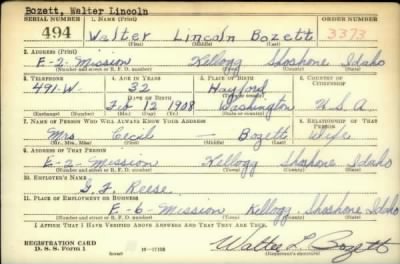 Bozett, Walter Lincoln
SERIAL NUMBER 1. NAME (Print) ORDER NUMBER
494 Walter Lincoln Bozett 3373
(First) (Middle) (Last)
2. ADDRESS (Print)
E-2-Mission Kellogg Shoshone Idaho
(Number and street or R. F. D. number) (Town) (County) (State)
3. TELEPHONE 4. AGE IN YEARS 5. PLACE OF BIRTH 6. COUNTRY OF CITIZENSHIP
491-W 32 Hayford
DATE OF BIRTH (Town or county)
12 1908 Washington U.S.A.
(Exchange) (Number) (Mo.) (Day) (Yr.) (State or country)
7. NAME OF PERSON WHO WILL ALWAYS KNOW YOUR ADDRESS 8. RELATIONSHIP OF THAT PERSON
Mrs Cecil — Bozett Wife
(Mr., Mrs., Miss) (First) (Middle) (Last)
9. ADDRESS OF THAT PERSON
E-2-Mission Kellogg Shoshone Idaho
(Number and street or R. F. D. number) (Town) (County) (State)
10. EMPLOYER'S NAME
Reese
11. PLACE OF EMPLOYMENT OR BUSINESS
E-6-Mission Kellogg Shoshone Idaho
(Number and street or R. F. D. number) (Town) (County) (State)
I AFFIRM THAT I HAVE VERIFIED ABOVE ANSWERS AND THAT THEY ARE TRUE.
REGISTRATION CARD
D. S. S. Form 1 16—17105 Walter L. Bozett
(Registrant's signature)